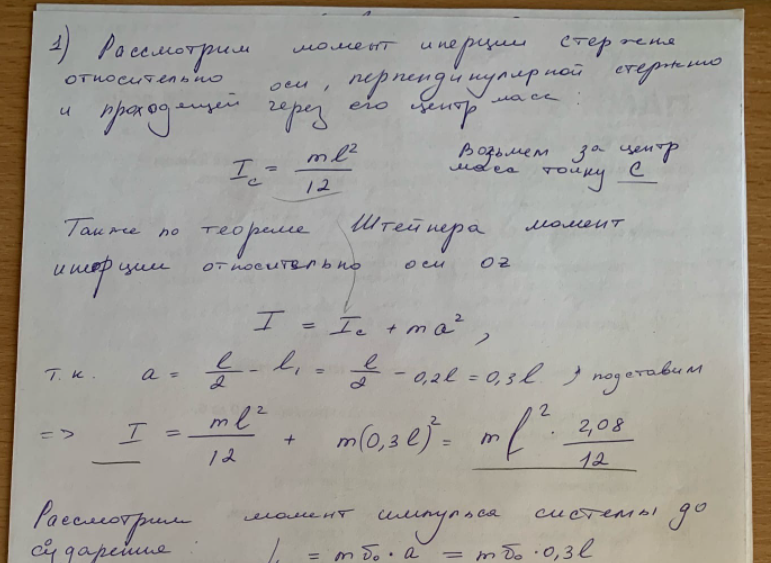 1) Рассмотрим момент инерции стержня
относительно оси, перпендикулярной стержню
и проходящей через его центр масс:
I_c = ml²/12 Возьмем за центр
масс точку C
Также по теореме Штейнера момент
инерции относительно оси OZ
I = I_c + ma²,
т.к. a = l/2 - l₁ = l/2 - 0,2l = 0,3l, подставим
=> I = ml²/12 + m(0,3l)² = ml² · 2,08/12
Рассмотрим момент импульса системы до
сударения: = mυ₀·a = mυ₀·0,3l